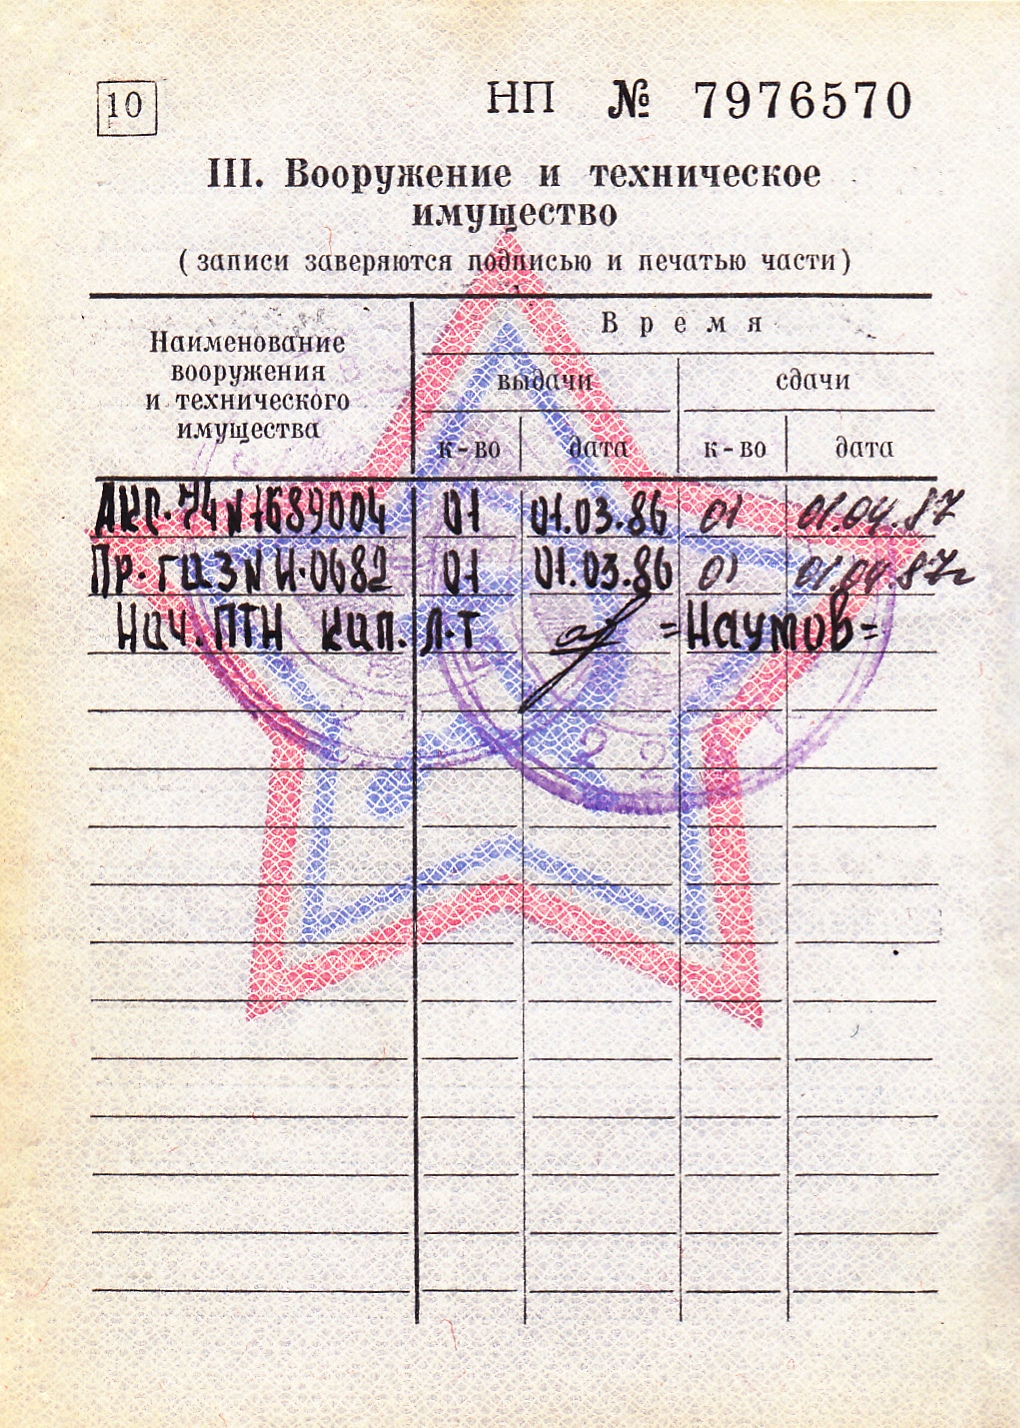 10
НП № 7976570
III. Вооружение и техническое
имущество
(записи заверяются подписью и печатью части)
Наименование
вооружения
и технического
имущества
Время
выдачи
сдачи
к-во
дата
к-во
дата
АКС-74 N 1689004 01 01.03.86 01 01.04.87
Пр. ГЦЗ N И-0682 01 01.03.86 01 01.04.87г
Нач. ПТН кап. л-т =Наумов=